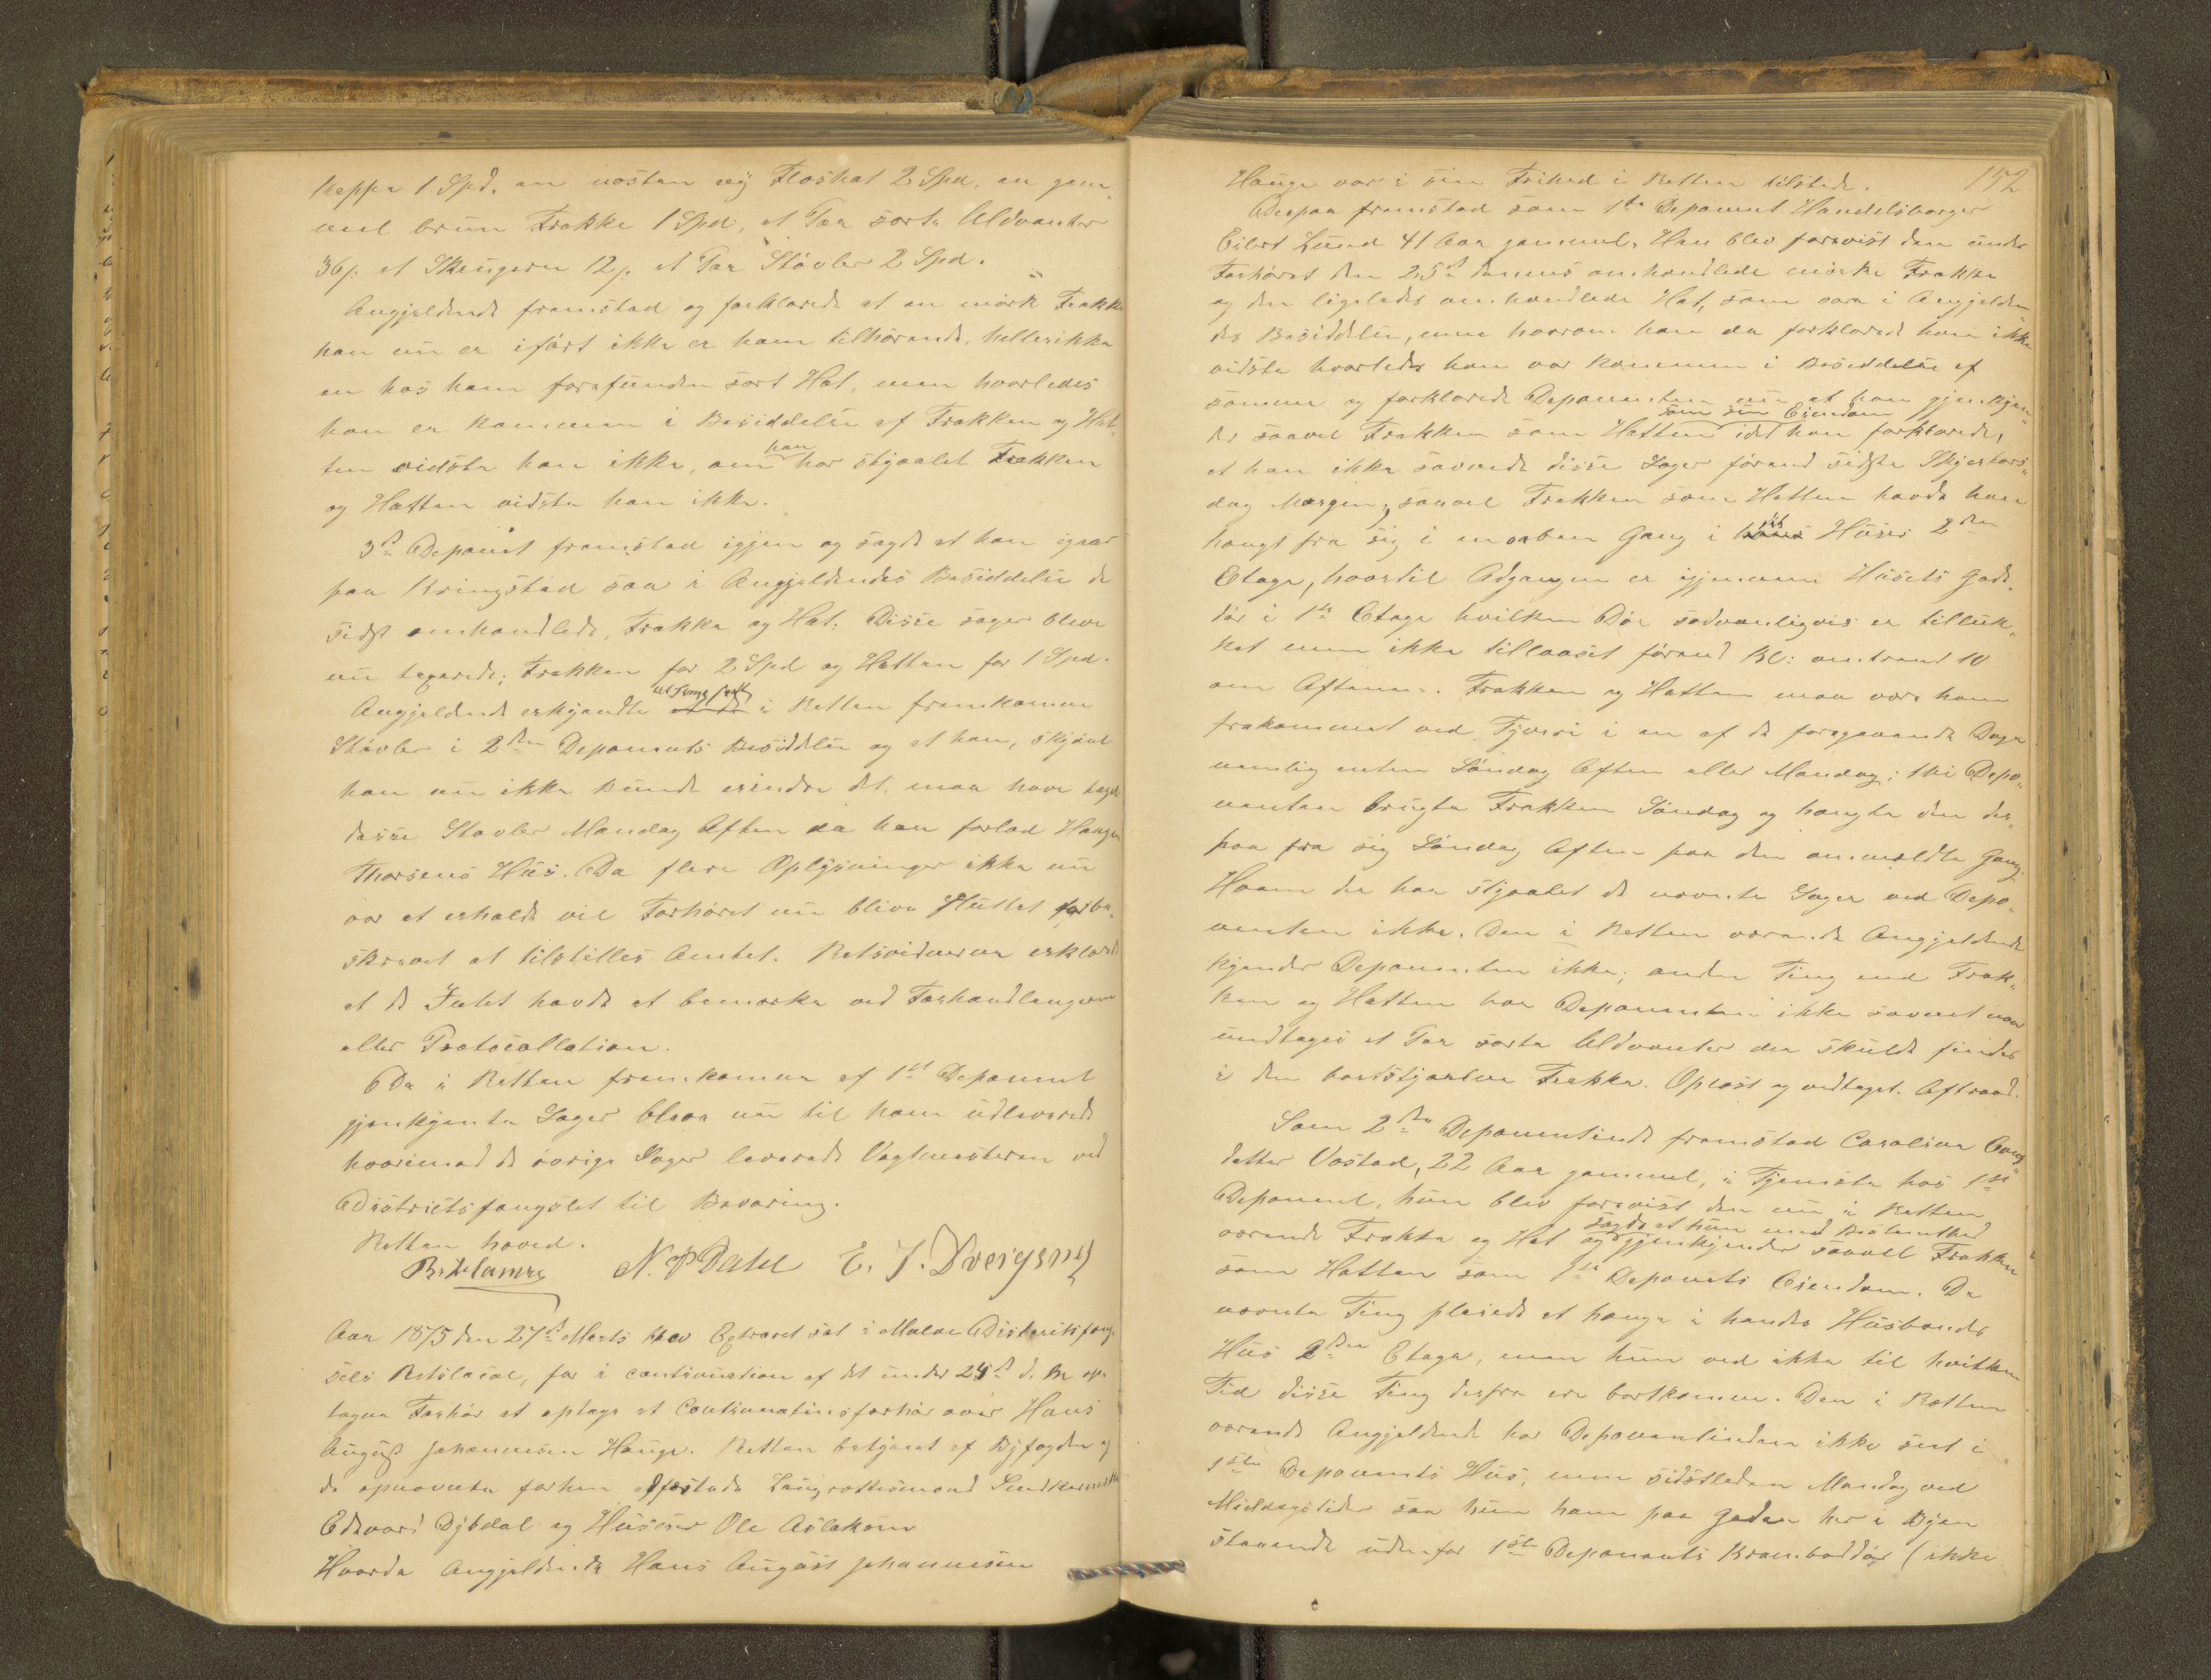 kappe 1 Spd, en næsten ny Floshat 2 Spd, en gam
mel brun Frakke 1 Spd, et Par sorte Uldvanter
36 s. et Skrugarn 12 s. et Par Støvler 2 Spd.
Angjeldende fremstod og forklarede at en mørk Frakke
han nu er iført ikke er ham tilhørende, heller ikke
en hos ham forefunden sort Hat, men hvorledes
han er kommen i Besiddelse af Frakken og Hat„
ten vidste han ikke, om han har stjaalet Frakken
og Hatten vidste han ikke.
3die Deponent fremstod igjen og sagde at han igaar
paa Kringstad saa i Angjeldendes Besiddelse de
sidst omhandlede, Frakke og Hat. Disse sager bleve
nu taxerede; Frakken for 2 Spd og Hatten for 1 Spd.
Angjeldende erkjendte i Retten fremkomne
Støvler i 2den Deponents Besiddelse og at han, skjønt
han nu ikke kunde erindre det, maa have taget
disse Støvler Mandag Aften da han forlod Haagen
Thorsens Hus. Da flere Oplysninger ikke nu
var at erholde vil Forhøret nu blive sluttet for be„
skrevet at tilstilles Amtet. Retsvidnerne erklærede
at de Intet havde at bemærke ved Forhandlingerne
eller Protocollation.
De i Retten fremkomne af 1ste Deponent
gjenkjente Sager bleve nu til ham udleverede
hvorimod de øvrige Sager leverede Vagtmesteren ved
Districtsfængslet til Bevaring.
Retten hævet.
N. P Dahl E. J. Dvergsnes
Aar 1875 den 27de Marts blev Extraret sat i Molde Districtsfæng„
sels Retslocal, for i continuation af det under 25de d. M op„
tagne Forhør at optage et Continuationsforhør over Hans
August Johannesen Hauge. Retten betjent af Byfogden og
de opnævnte forhen edfæstede Laugrettesmænd Snedkermester
Edevard Dybdal og Huseier Ole Aslaksen
Hvorda Angjeldende Hans August Johannesen
152
Hauge var i sin Frihed i Retten tilstede.
Derpaa fremstod som 1ste Deponent Handelsborger
Eilert Lund 41 Aar gammel. Han blev forevist den under
Forhøret den 25de dennes omhandlede mørke Frakke
og den ligeledes omhandlede Hat, som vare i Angjelden„
des Besiddelse, men hvorom han da forklarede han ikke
vidste hvorledes han var kommen i Besiddelse af
samme og forklarede Deponenten nu at han gjenkjen„
der saavel Frakken som Hatten som sin Eiendom idet han forklarede,
at han ikke savnede disse Sager førend sidste Skjertors„
dag Morgen; saavel Frakken som Hatten havde han
hængt fra sig i en aaben Gang i sit Huses 2den
Etage, hvortil Adgangen er igjennem Husets Gade„
dør i 1ste Etage hvilken Dør sædvanligvis er tilluk„
ket men ikke tillaaset førend Kl: omtrent 10
om Aftenen. Frakken og Hatten maa være ham
frakommet ved Tyveri i en af de foregaaende Dage
nemlig enten Søndag Aften eller Mandag; thi Depo„
nenten brugte Frakken Søndag og hængte den der„
paa fra sig Søndag Aften paa den anmeldte Gang.
Hvem der har stjaalet de nævnte Sager ved Depo„
nenten ikke. Den i Retten værende Angjeldende
kjender Deponenten ikke; anden Ting end Frak„
ken og Hatten har Deponenten ikke savnet naar
undtages et Par sorte Uldvanter der skulde findes
i den bortstjaalne Frakke. Oplæst og vedtaget. Aftraad.
Som 2den Deponentinde fremstod Caroline
datter Vestad, 22 Aar gammel, i Tjeneste hos 1ste
Deponent, hun blev forevist den nu i Retten
værende Frakke og Hat og sagde at hun med Bestemthed gjenkjender saavel Frakken
som Hatten som 1ste Deponents Eiendom. De
nævnte Ting pleiede at hænge i hendes Husbonds
Hus 2den Etage, men hun ved ikke til hvilken
Tid disse Ting derfra ere bortkomne. Den i Retten
værende Angjeldende har Deponentinden ikke seet i
1ste Deponents Hus, men sidstleden Mandag ved
Middagstider saa hun ham paa Gaden her i Byen
staaende udenfor 1ste Deponents Kramboddør (ikke